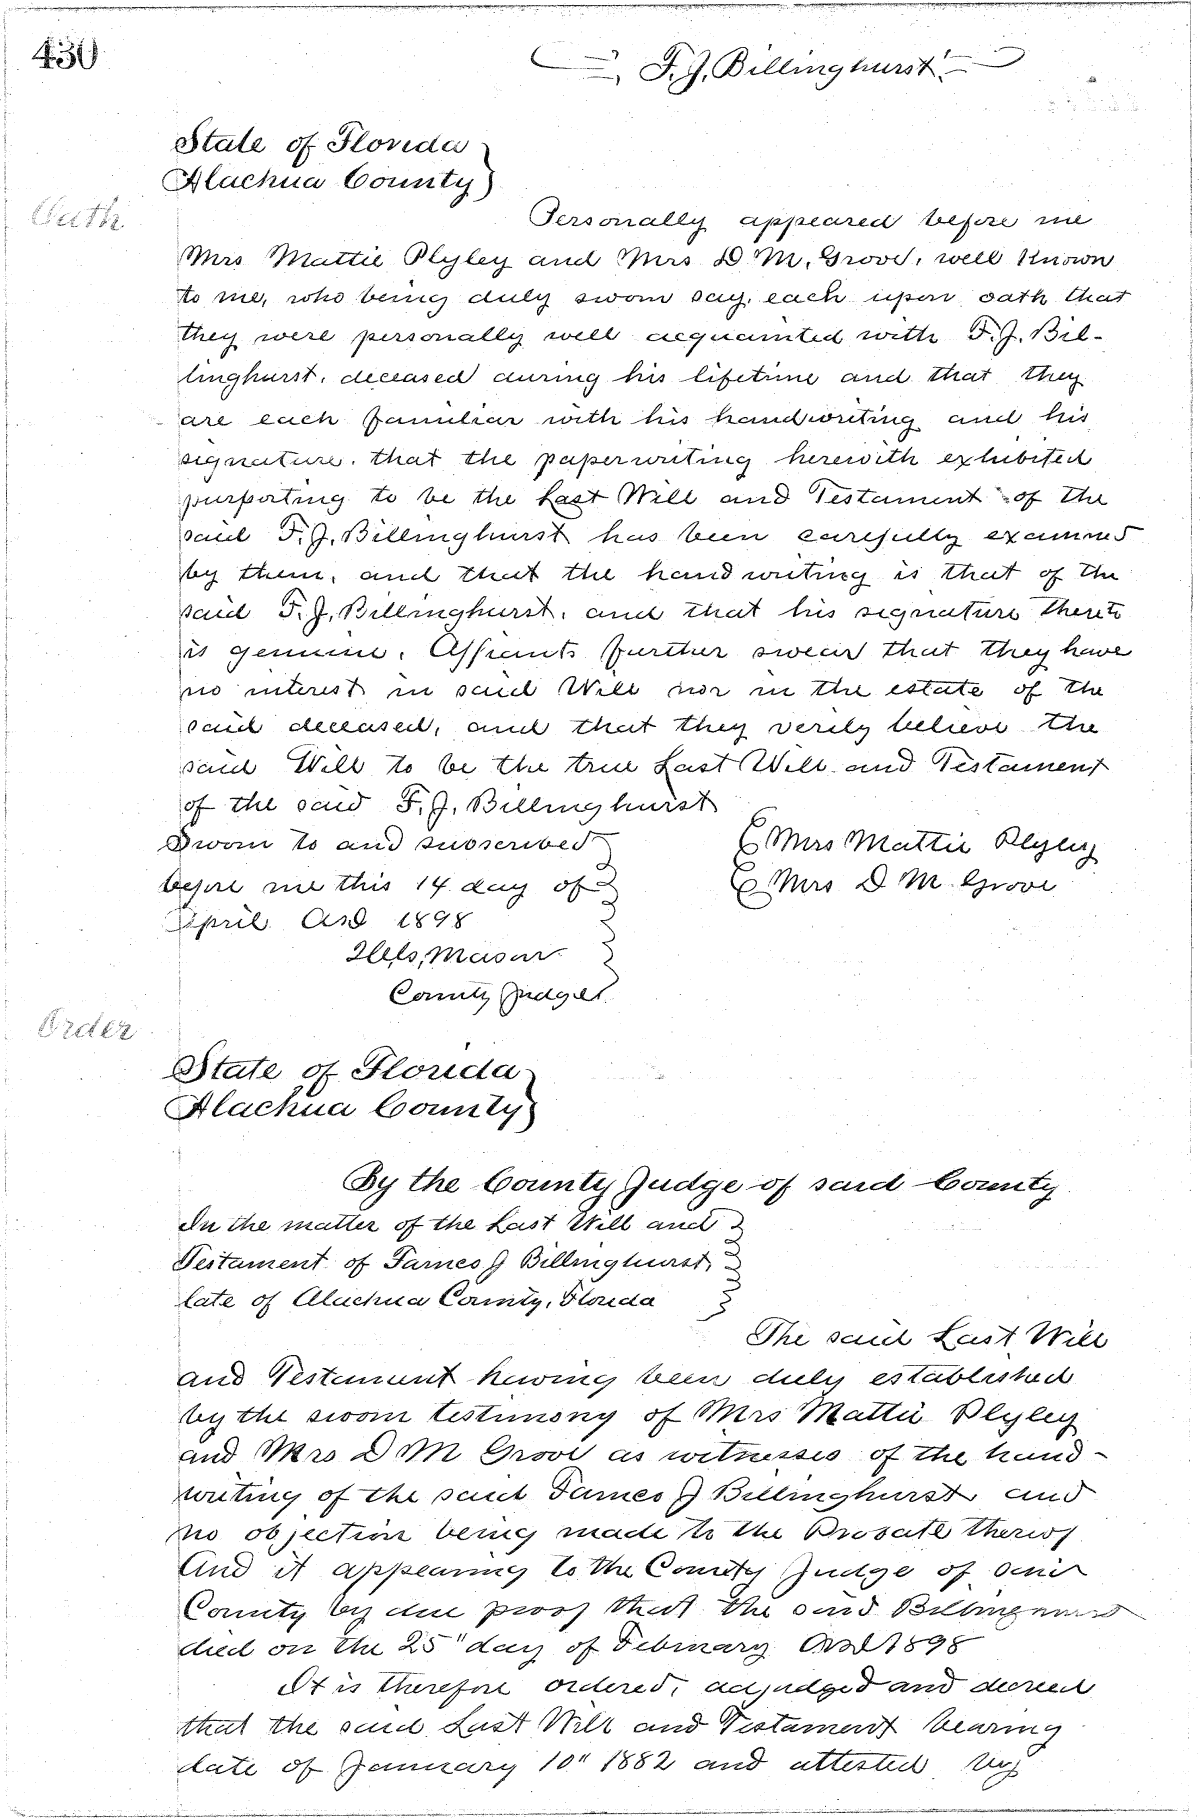 430
F. J. Billinghurst
State of Florida
Alachua County
Oath
Personally appeared before me
Mrs Mattie Plyley and Mrs D M. Grove, well Known
to me, who being duly sworn say, each upon oath that
they were personally well acquainted with F. J. Bil-
linghurst, deceased during his lifetime and that they
are each familiar with his handwriting and his
signature. that the paperwriting herewith exhibited
purporting to be the Last Will and Testament of the
said F. J. Billinghurst has been carefully examined
by them, and that the handwriting is that of the
said F. J. Billinghurst. and that his signature thereto
is genuine. Affiants further swear that they have
no interest in said Will nor in the estate of the
said deceased, and that they verily believe the
said Will to be the true Last Will and Testament
of the said F. J. Billinghurst
Sworn to and subscribed
before me this 14 day of
April AD 1898
Mrs Mattie Plyley
Mrs D M Grove
Mason
County Judge
Order
State of Florida
Alachua County
By the County Judge of said County
In the matter of the Last Will and
Testament of James J Billinghurst,
late of Alachua County, Florida
The said Last Will
and Testament having been duly established
by the sworn testimony of Mrs Mattie Plyley
and Mrs D M Grove as witnesses of the hand-
writing of the said James J Billinghurst and
no objection being made to the Probate thereof
And it appearing to the County Judge of said
County by due proof that the said Billinghurst
died on the 25" day of February AD 1898
It is therefore ordered, adjudged and decreed
that the said Last Will and Testament bearing
date of January 10" 1882 and attested by